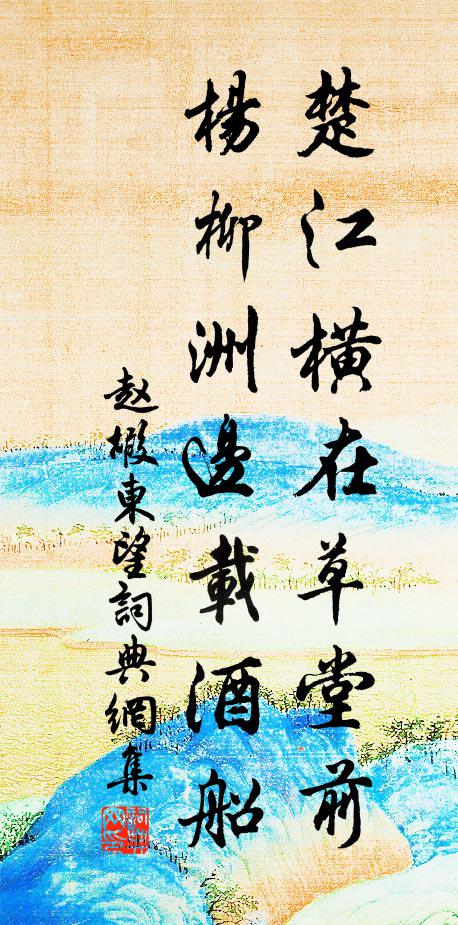 楚江橫在草堂前
楊柳洲邊載酒船
赵嘏東望詞典網集